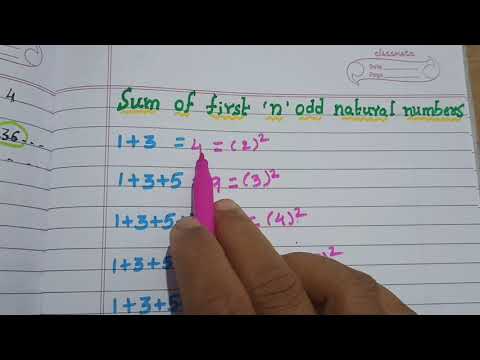 classmate
Date
Page
4
36...
Sum of first 'n' odd natural numbers
1+3 = 4 = (2)²
1+3+5 9 = (3)²
1+3+5 = (4)²
1+3+5 )²
1+3+5